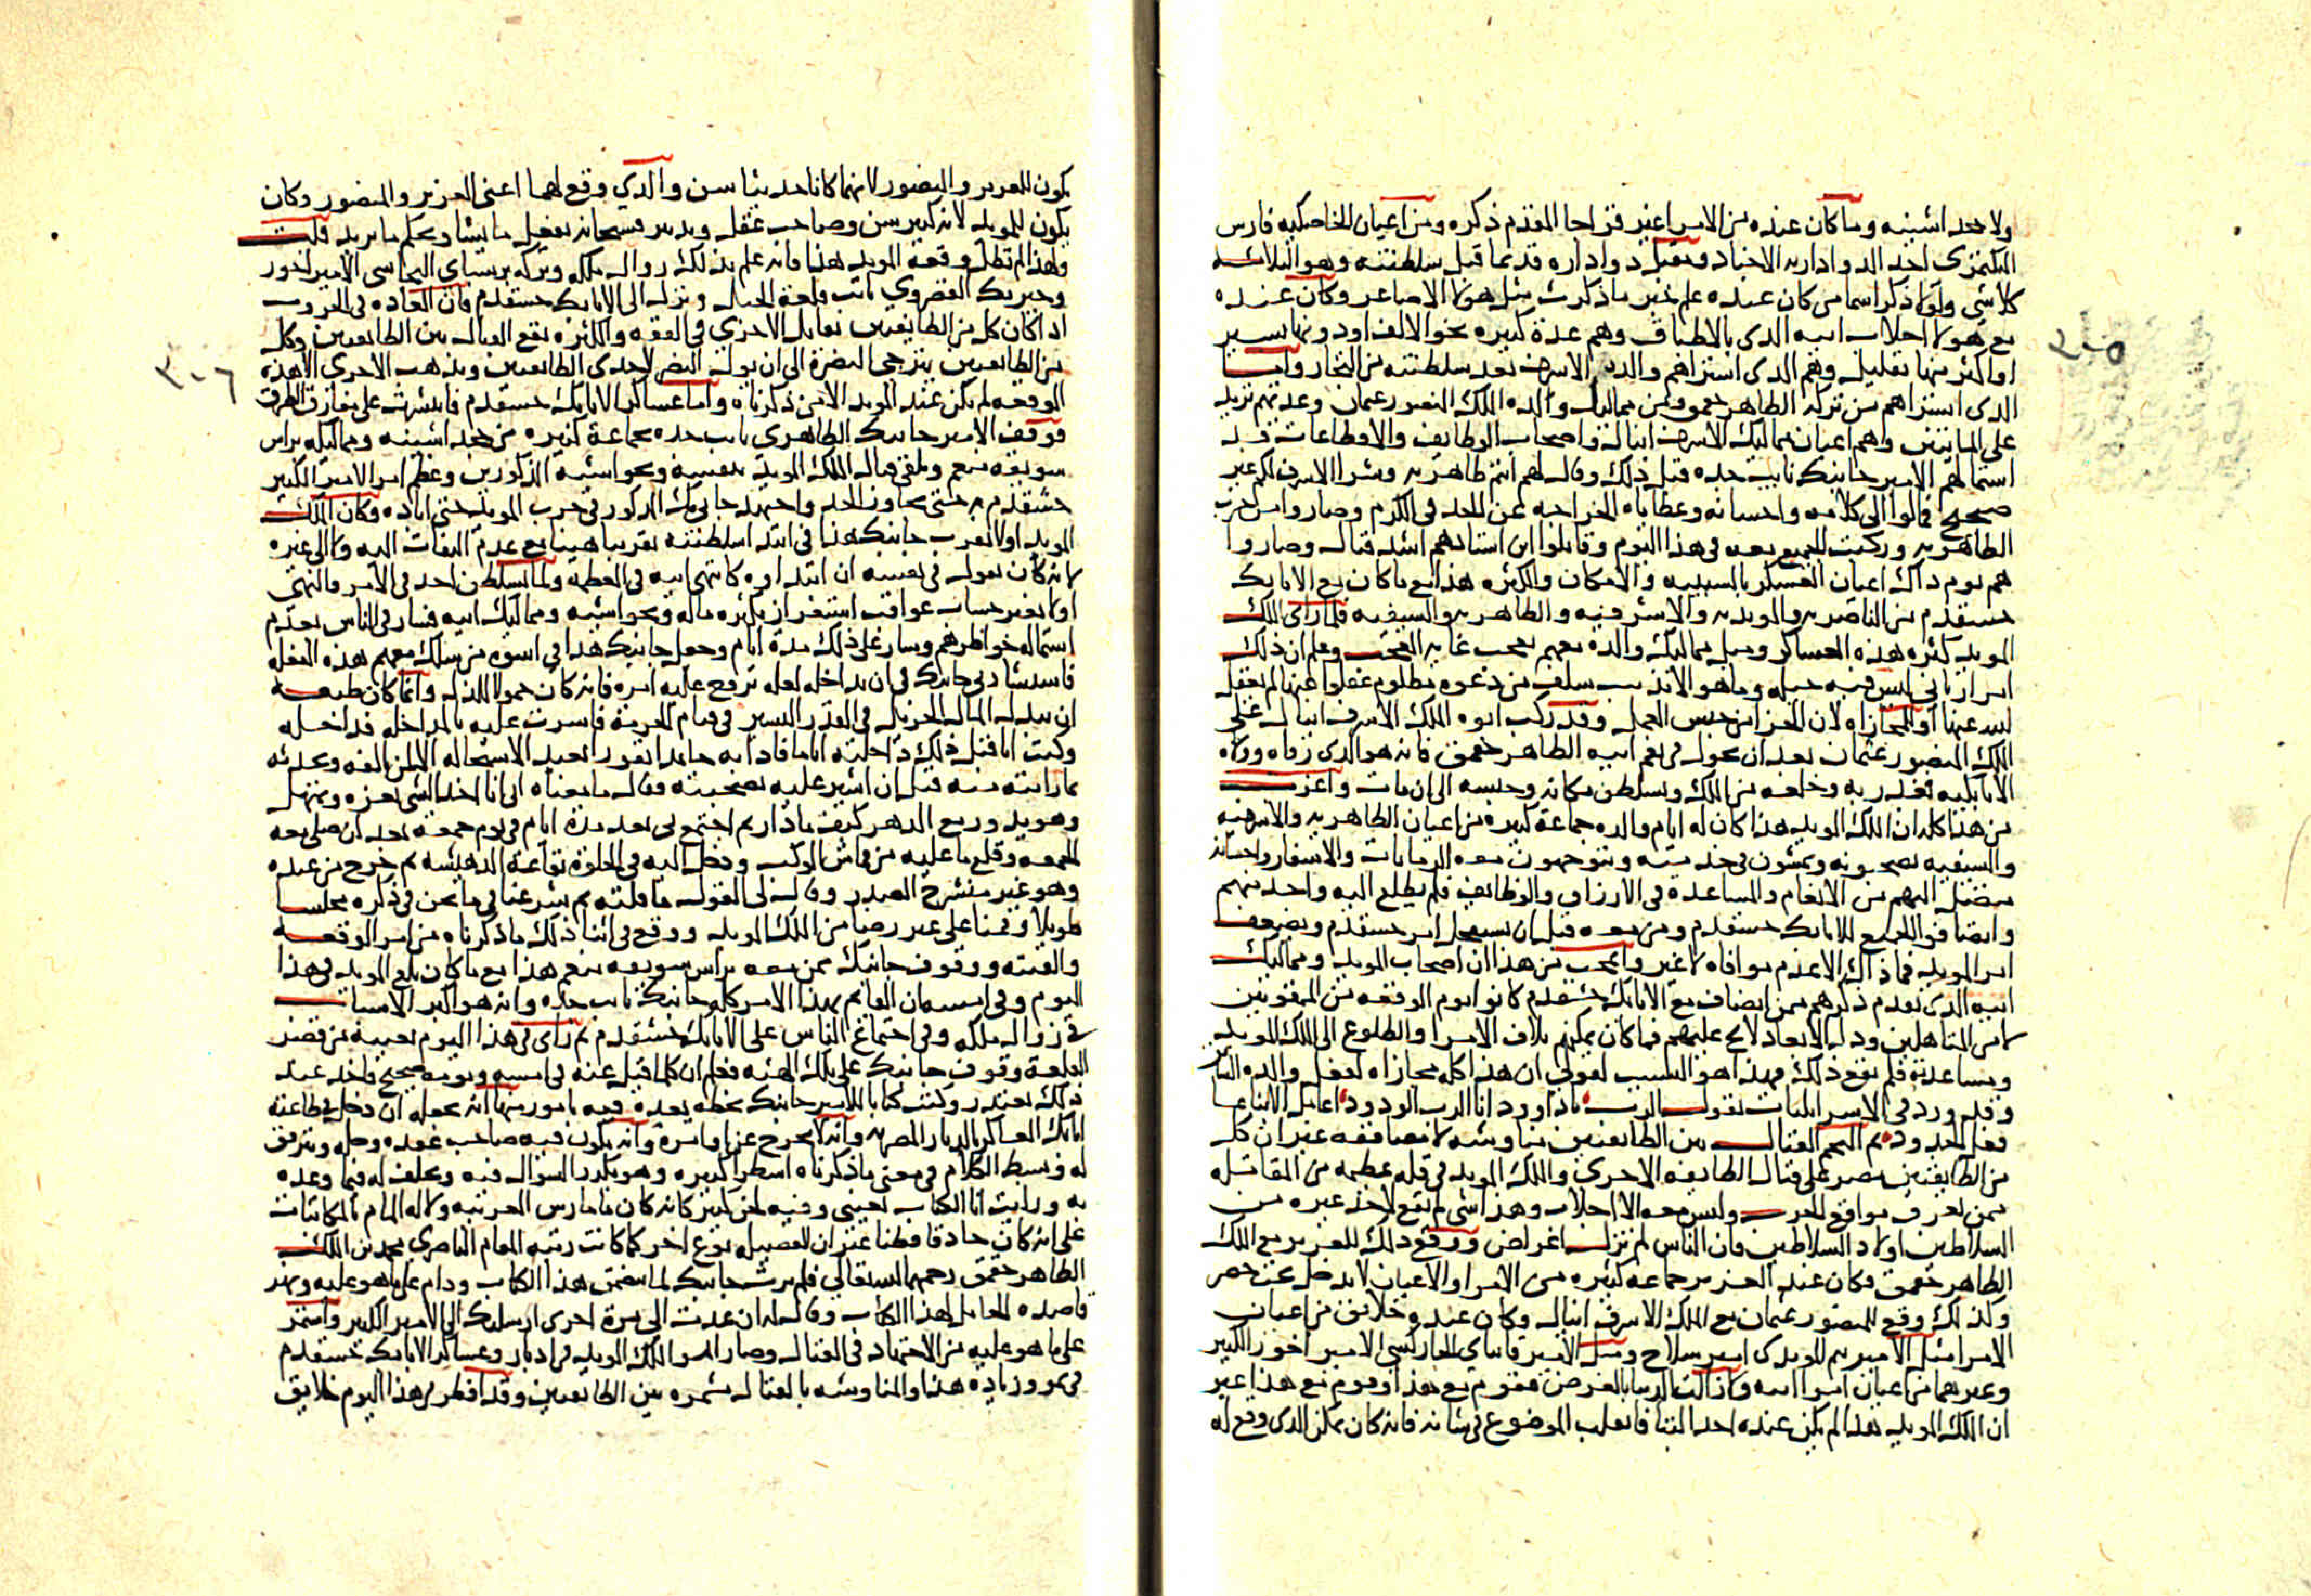 ولا بعد اشينه وما كان عنده من الامرا غير قزاجا المقدم ذكره ومن اعيان الخاصكيه فارس
البكتمري احد الدواداريه الاجناد ومقبل دواداره قديما قبل سلطنته وهو الثلاثه
كلاشي ولولا ذكر اسما من كان عنده علم خبر ما ذكرت مثل هولا الاصاغر وكان عنده
مع هولا اجلاب ابيه الدي بالاطباق وهم عدة كبيره نحو الالف او دونها بيسير
او اكثر منها بقليل وهم الدي اشتراهم والده الاشرف بعد سلطنته من التجار واما
الدي اشتراهم من تركه الطاهر جقمق ومن مماليك والده الملك المنصور عثمان وعدتهم تزيد
على الماتين وهم اعيان مماليك الاشرف اينال واصحاب الوظايف والاقطاعات قد
استمالهم الامير جانبك نايب جده قبل ذلك وقال لهم انتم طاهريه وشرا الاشرف لكم غير
صحيح فمالوا الى كلامه واحسانه وعطاياه الخراجه عن الحد في الكرم وصاروا من حزب
الطاهريه وركبت الجميع معه في هذا اليوم وقاتلوا ابن استادهم اشد قتال وصاروا
هم يوم داك اعيان العسكر بالسبيبه والامكان والكثره هذا مع ما كان مع الاتابك
خشقدم من الناصريه والمويديه والاشرفيه والطاهريه والسيفيه فلما راى الملك
المويد كثره هذه العساكر وميل مماليك والده معهم تعجب غايه العجب وعلم ان ذلك
امر رباني ليس فيه حيله وما هو الا بذنب سلف من دعوه مظلوم غفلوا عنها لم يغفل
الله عنها او للمجازاه لان الجزا من جنس العمل وقد ركب ابوه الملك الاشرف اينال على
الملك المنصور عثمان بعد ان تحول في نعم ابيه الطاهر جقمق فانه هو الدي رقاه وولاه
الاتابكيه فغدر به وخلعه من الملك وتسلطن مكانه وحبسه الى ان مات واغرب
من هذا كله ان الملك المويد هذا كان له ايام والده جماعة كبيره من اعيان الطاهريه والاشرفيه
والسيفيه يصحبونه ويمشون في خدمته ويتوجهون معه الرمايات والاسفار واحسانه
متصل اليهم من الانعام والمساعده في الارزاق والوظايف فلم يطلع اليه واحد منهم
وايضا فوا الجميع للاتابك خشقدم ومن معه قبل ان يستفحل امر خشقدم ويضعف
امر المويد فما ذاك الا عدم موافاه لا غير واعجب من هذا ان اصحاب المويد ومماليك
ابيه الدي تقدم ذكرهم ممن انضاف مع الاتابك خشقدم كانوا يوم الوقعه من الممقوتين
لا من المتاهلين ودل الابعاد لايح عليهم فما كان يمكنهم تلاف الامرا والطلوع الى الملك المويد
ومساعدته فلم يقع ذلك فهذا هو السبب لقولي ان هذا كله مجازاه لفعل والده السابق
وقد ورد في الاسرايليات يقول الرب يا داوود انا الرب الودود اعامل الابنا بما
فعل الجدود ثم التحم القتال بين الطايفتين مناوشه لا مصاففه غير ان كل
من الطايفتين مصر على قتال الطايفه الاخرى والملك المويد في قله عظيمه من المقاتله
ممن يعرف مواقع الحرب وليس معه الا اجلاب وهذا شي لم يقع لاحد غيره من
السلاطين اولاد السلاطين فان الناس لم تزل اغراض ووقع ذلك للعزيز مع الملك
الطاهر جقمق فكان عند العزيز جماعه كثيره من الامرا والاعيان لا يدخل تحت حصر
وكذلك وقع للمنصور عثمان مع الملك الاشرف اينال وكان عنده خلايق من اعيان
الامرا مثل الامير تنم المويدي امير سلاح ومثل الامير قانباي الجاركسي الامير اخور الكبير
وغيرهما من اعيان امرا ابيه وما زالت الدنيا بالغرض فقوم مع هذا وقوم مع هذا غير
ان الملك المويد هذا لم يكن عنده احد البتا فانعلب الموضوع في شانه فانه كان يمكن الدي وقع له
يكون للعزيز والمنصور لانهما كانا حديثا سن والدي وقع لهما اعنى العزيز والمنصور وكان
يكون للمويد لانه كبير سن وصاحب عقل وتدبير فسبحانه يفعل ما يشا ويحكم ما يريد قلت
ولهذا لم تطل وقعه المويد هذا فانه علم بذلك زوال ملكه وتركه برسباي البجاسي الامير اخور
وخيربك القصروي نايب قلعة الجبل ونزل الى الاتابك خشقدم فان العاده في الحروب
اذا كان كل من الطايفتين تقابل الاخرى في القوه والكثره يقع القتال بين الطايفتين وكل
من الطايفتين يترجى النصره الى ان يول النصر لاحدى الطايفتين ويذهب الاخرى الا هذه
الوقعه لم يكن عند المويد الا من ذكرناه واما عساكر الاتابك خشقدم فانتشرت على مفارق الطرق
فوقف الامير جانبك الطاهري نايب جده بجماعة كثيره من خجداشينه ومماليكه براس
سويقه منعم وتلقى قتال الملك المويد بنفسه وبحواشيه المذكورين وعظم امر الامير الكبير
خشقدم به حتى تجاوز الحد واجتهد جانبك المذكور في حرب المويد حتى اباده وكان الملك
المويد اولا لقرب جانبك هذا في ابتدا سلطنته تقريبا هينا مع عدم التفات اليه ولا الى غيره
لانه كان يقول في نفسه ان ابتدا امره كانتهى ابيه في العظمة ولما تسلطن اخد في الامر والنهي
اولا بغير حساب عواقب استغر ان بكثره ماله وبحواشيه ومماليك ابيه فسار في الناس بعدم
استماله خواطرهم وسار على ذلك مدة ايام وجعل جانبك هذا في اسوه من سلك معهم هذه الفعله
فاستشارني جانبك في ان يداخله لعله ترقع عليه امره فانه كان حمولا للذل وانما كان طبعه
ان يبذل المال الجزيل في القدر اليسير في قيام الحرمة فاشرت عليه بالمداخله فداخله
وكنت انا قبل ذلك داخلته اياما فاذا به جامدا نفورا بعيد الاستحاله الا لمن الفه وتحدثه
بما رايته منه قبل ان اشير عليه بصحبته فقال ما معناه الى انا اخد الشي بعزه وتمهل
وهو يدور مع الدهر كيف ما دار ثم اجتمع بي بعد مدة ايام في يوم جمعه بعد ان صلى معه
الجمعه وقلع ما عليه من قماش الموكب ودخل اليه في الخلوة بقاعة الدهيشه ثم خرج من عنده
وهو غير منشرح الصدر وقال لي القول ما قلته ثم شرعنا في ما نحن في ذكره مجلسا
طويلا وقمنا على غير رضا من الملك المويد ووقع في اثنا ذلك ما ذكرناه من امر الوقعه
والفتنه ووقوف جانبك بمن معه براس سويقه منعم هذا مع ما كان بلغ المويد في هذا
اليوم وفي امسه بان القايم بهذا الامر كله جانبك نايب جده وانه هو اكبر الاسباب
في زوال ملكه وفي اجتماع الناس على الاتابك خشقدم ثم راى في هذا اليوم بعينه من قصر
القلعة وقوف جانبك على تلك الهيئه فعلم ان كلما قيل عنه في امسه ويومه صحيح فاخد عند
ذلك يعتذر وكتب كتابا للامير جانبك بخطه يعده فيه بامور منها انه يجعله ان دخل في طاعته
اتابك العساكر بالديار المصريه وانه لا يخرج عن اوامره وانه يكون فيه صاحب عقده وحله ويترفق
له وبسط الكلام في معنى ما ذكرناه اسطرا كثيره وهو يكرر السوال فيه ويحلف له فيما وعده
به ورايت انا الكتاب بعيني وفيه لحن كبير كانه كان ما مارس العربيه ولا له المام بالمكاتبات
على انه كان حادقا فطنا غير ان الفضيله نوع اخر كما كانت رتبه المقام الناصري محمد بن الملك
الطاهر جقمق رحمهما الله تعالى فلم يرث جانبك لما تضمن هذا الكتاب ودام على ما هو عليه ونهر
قاصده الحامل لهذا الكتاب وقال له ان عدت الى مرة اخرى ارسلتك الى الامير الكبير واستمر
على ما هو عليه من الاجتهاد في القتال وصار امر الملك المويد في ادبار وعساكر الاتابك خشقدم
في نمو وزيادة هذا والمناوشه بالقتال مستمره بين الطايفتين وقد افطر في هذا اليوم خلايق
٣٠٥
٣٠٦